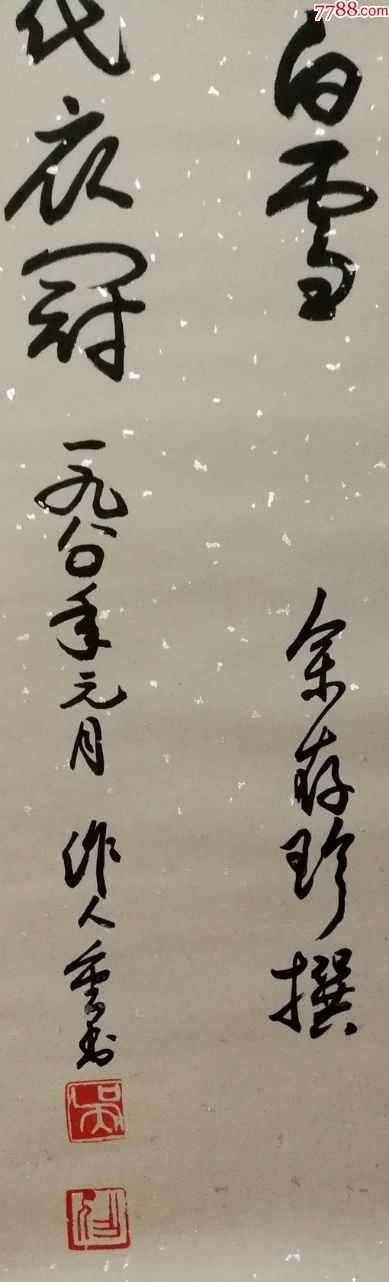 7788.com
白雪
余存珍撰
代衣冠
一九八〇年元月 作人重书
吴